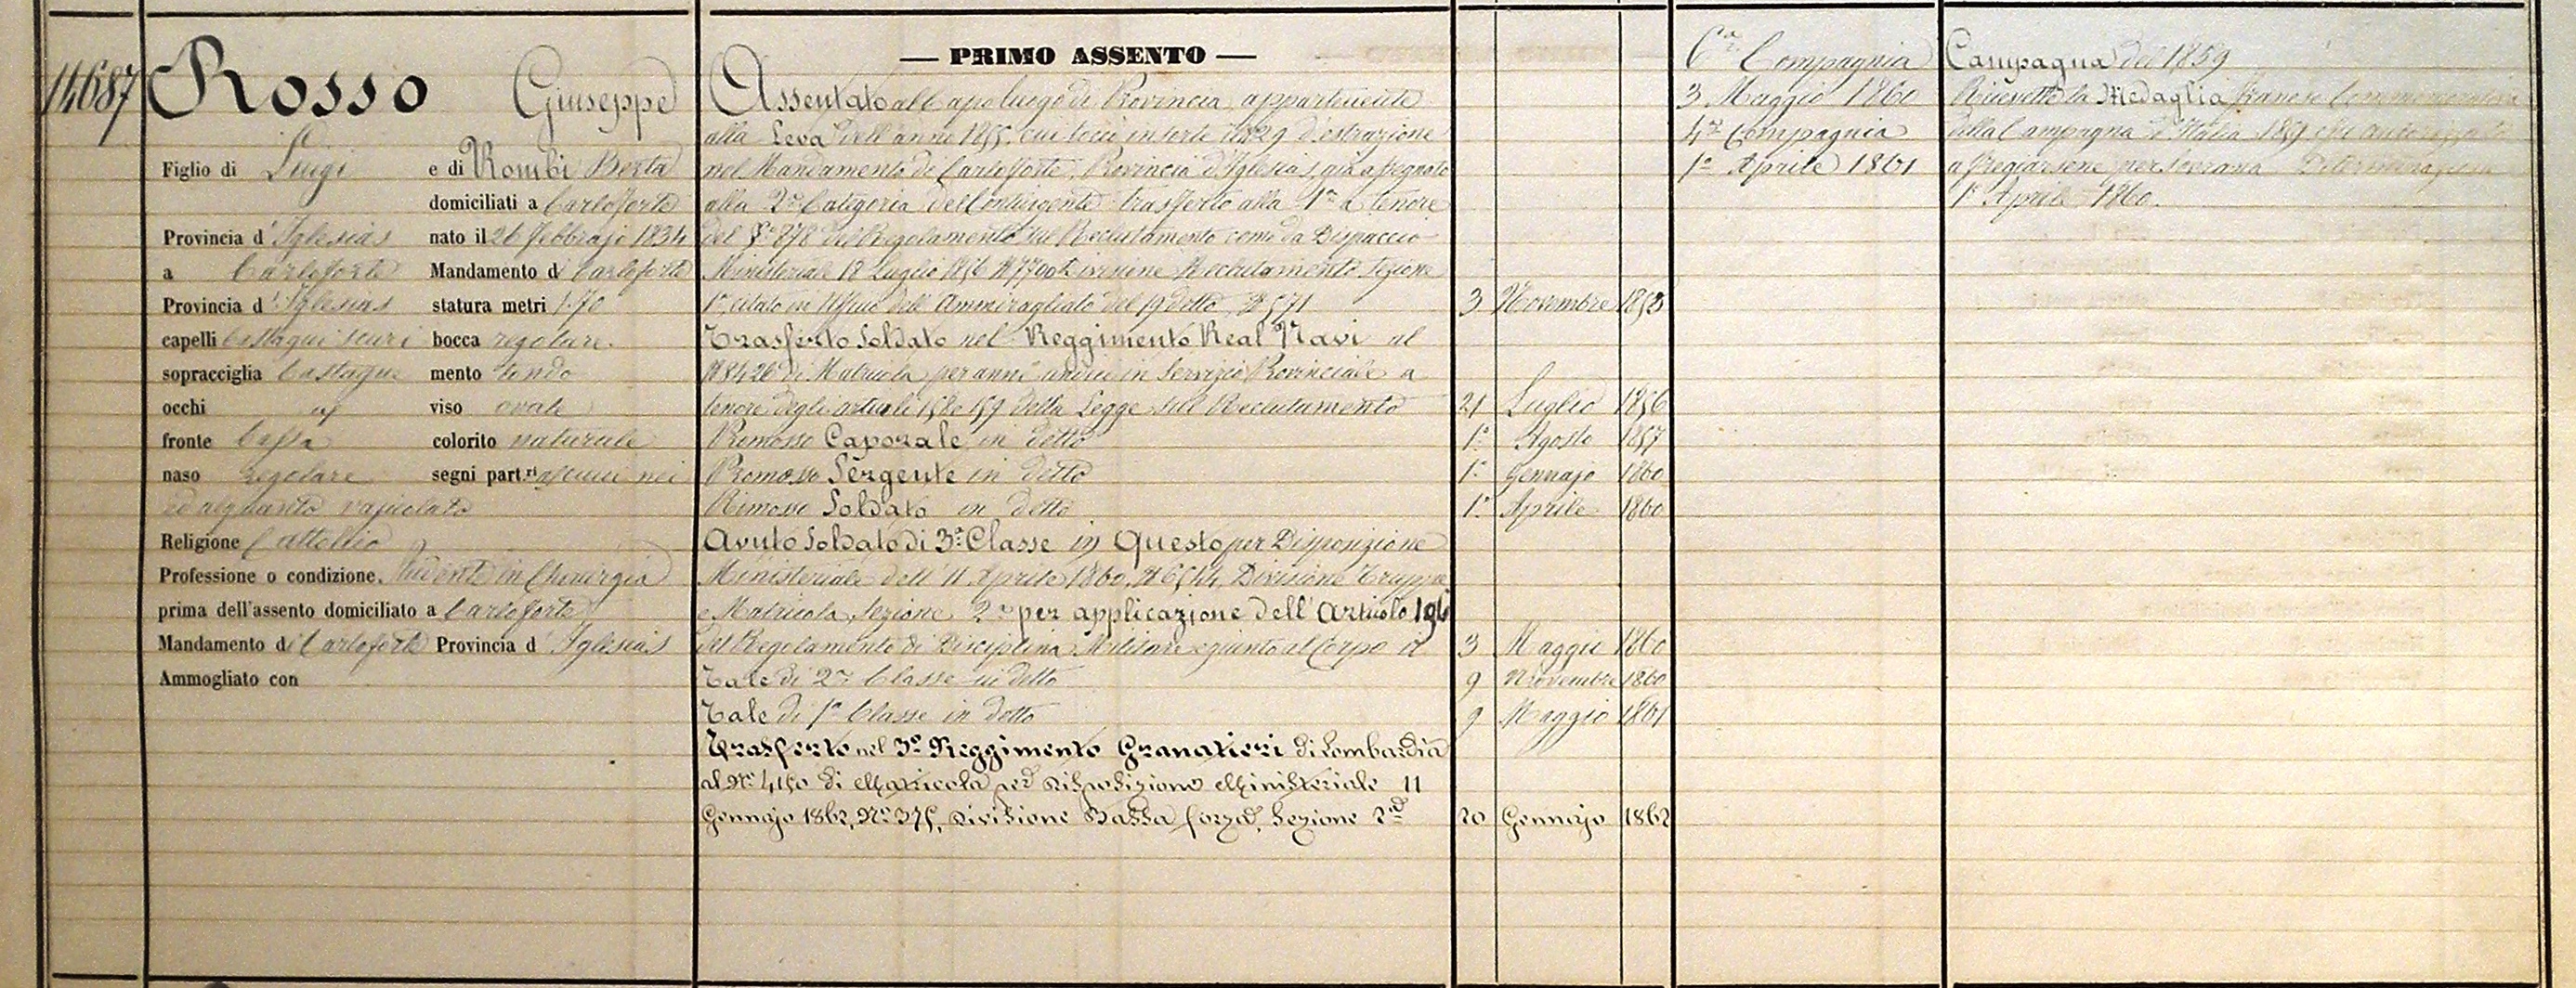 14687
Rosso Giuseppe
Figlio di Luigi e di Rombi Berta
domiciliati a Carloforte
Provincia d' Iglesias nato il 26 febbrajo 1834
a Carloforte Mandamento di Carloforte
Provincia d' Iglesias statura metri 1.70
capelli castagni scuri bocca regolare
sopracciglia castagne mento tondo
occhi viso ovale
fronte bassa colorito naturale
naso regolare segni part.ri alcuni nei
ed alquanto vajuolato
Religione Cattolica
Professione o condizione. Studente in Chirurgia
prima dell'assento domiciliato a Carloforte
Mandamento di Carloforte Provincia d' Iglesias
Ammogliato con
— PRIMO ASSENTO —
Assentato al Capoluogo di Provincia appartenente
alla Leva dell'anno 1855 cui toccò in sorte il N 29 d'estrazione
nel Mandamento di Carloforte, Provincia d'Iglesias, già assegnato
alla 2a Categoria del Contingente trasferto alla 1a a tenore
del § 878 del Regolamento sul Reclutamento come da Dispaccio
Ministeriale 18 Luglio 1856 Reclutamento Sezione
1a, citato in Ufficio dell'Ammiragliato del 19 detto, N 571 3 Novembre
Trasferto Soldato nel Reggimento Real Navi al
N 8426 di Matricola per anni undici in Servizio Provinciale a
tenore degli articoli 158 e 159 della Legge sul Reclutamento 21 Luglio 1856
Promosso Caporale in detto 1° Agosto 1857
Promosso Sergente in detto 1° Gennajo 1860
Rimosso Soldato in detto 1° Aprile 1860
Avuto Soldato di 3a Classe in Questo per Disposizione
Ministeriale dell'11 Aprile 1860, N 6544, Divisione Truppe
e Matricola, Sezione 2a per applicazione dell'Articolo 196
del Regolamento di Disciplina Militare e giunto al Corpo il 3 Maggio 1860
Tale di 2a Classe in detto 9 Novembre 1860
Tale di 1a Classe in detto 9 Maggio 1861
Trasferto nel 3° Reggimento Granatieri di Lombardia
al N° 4150 di Matricola per Disposizione Ministeriale 11
Gennajo 1862, N° 375, Divisione Bassa forza, Sezione 2a 20 Gennajo 1862
6a Compagnia
3 Maggio 1860
4a Compagnia
1° Aprile 1861
Campagna del 1859
Ricevette la Medaglia Francese Commemorativa
della Campagna d'Italia 1859 che autorizzato
a fregiarsene per Sovrana Determinazione
1° Aprile 1860.